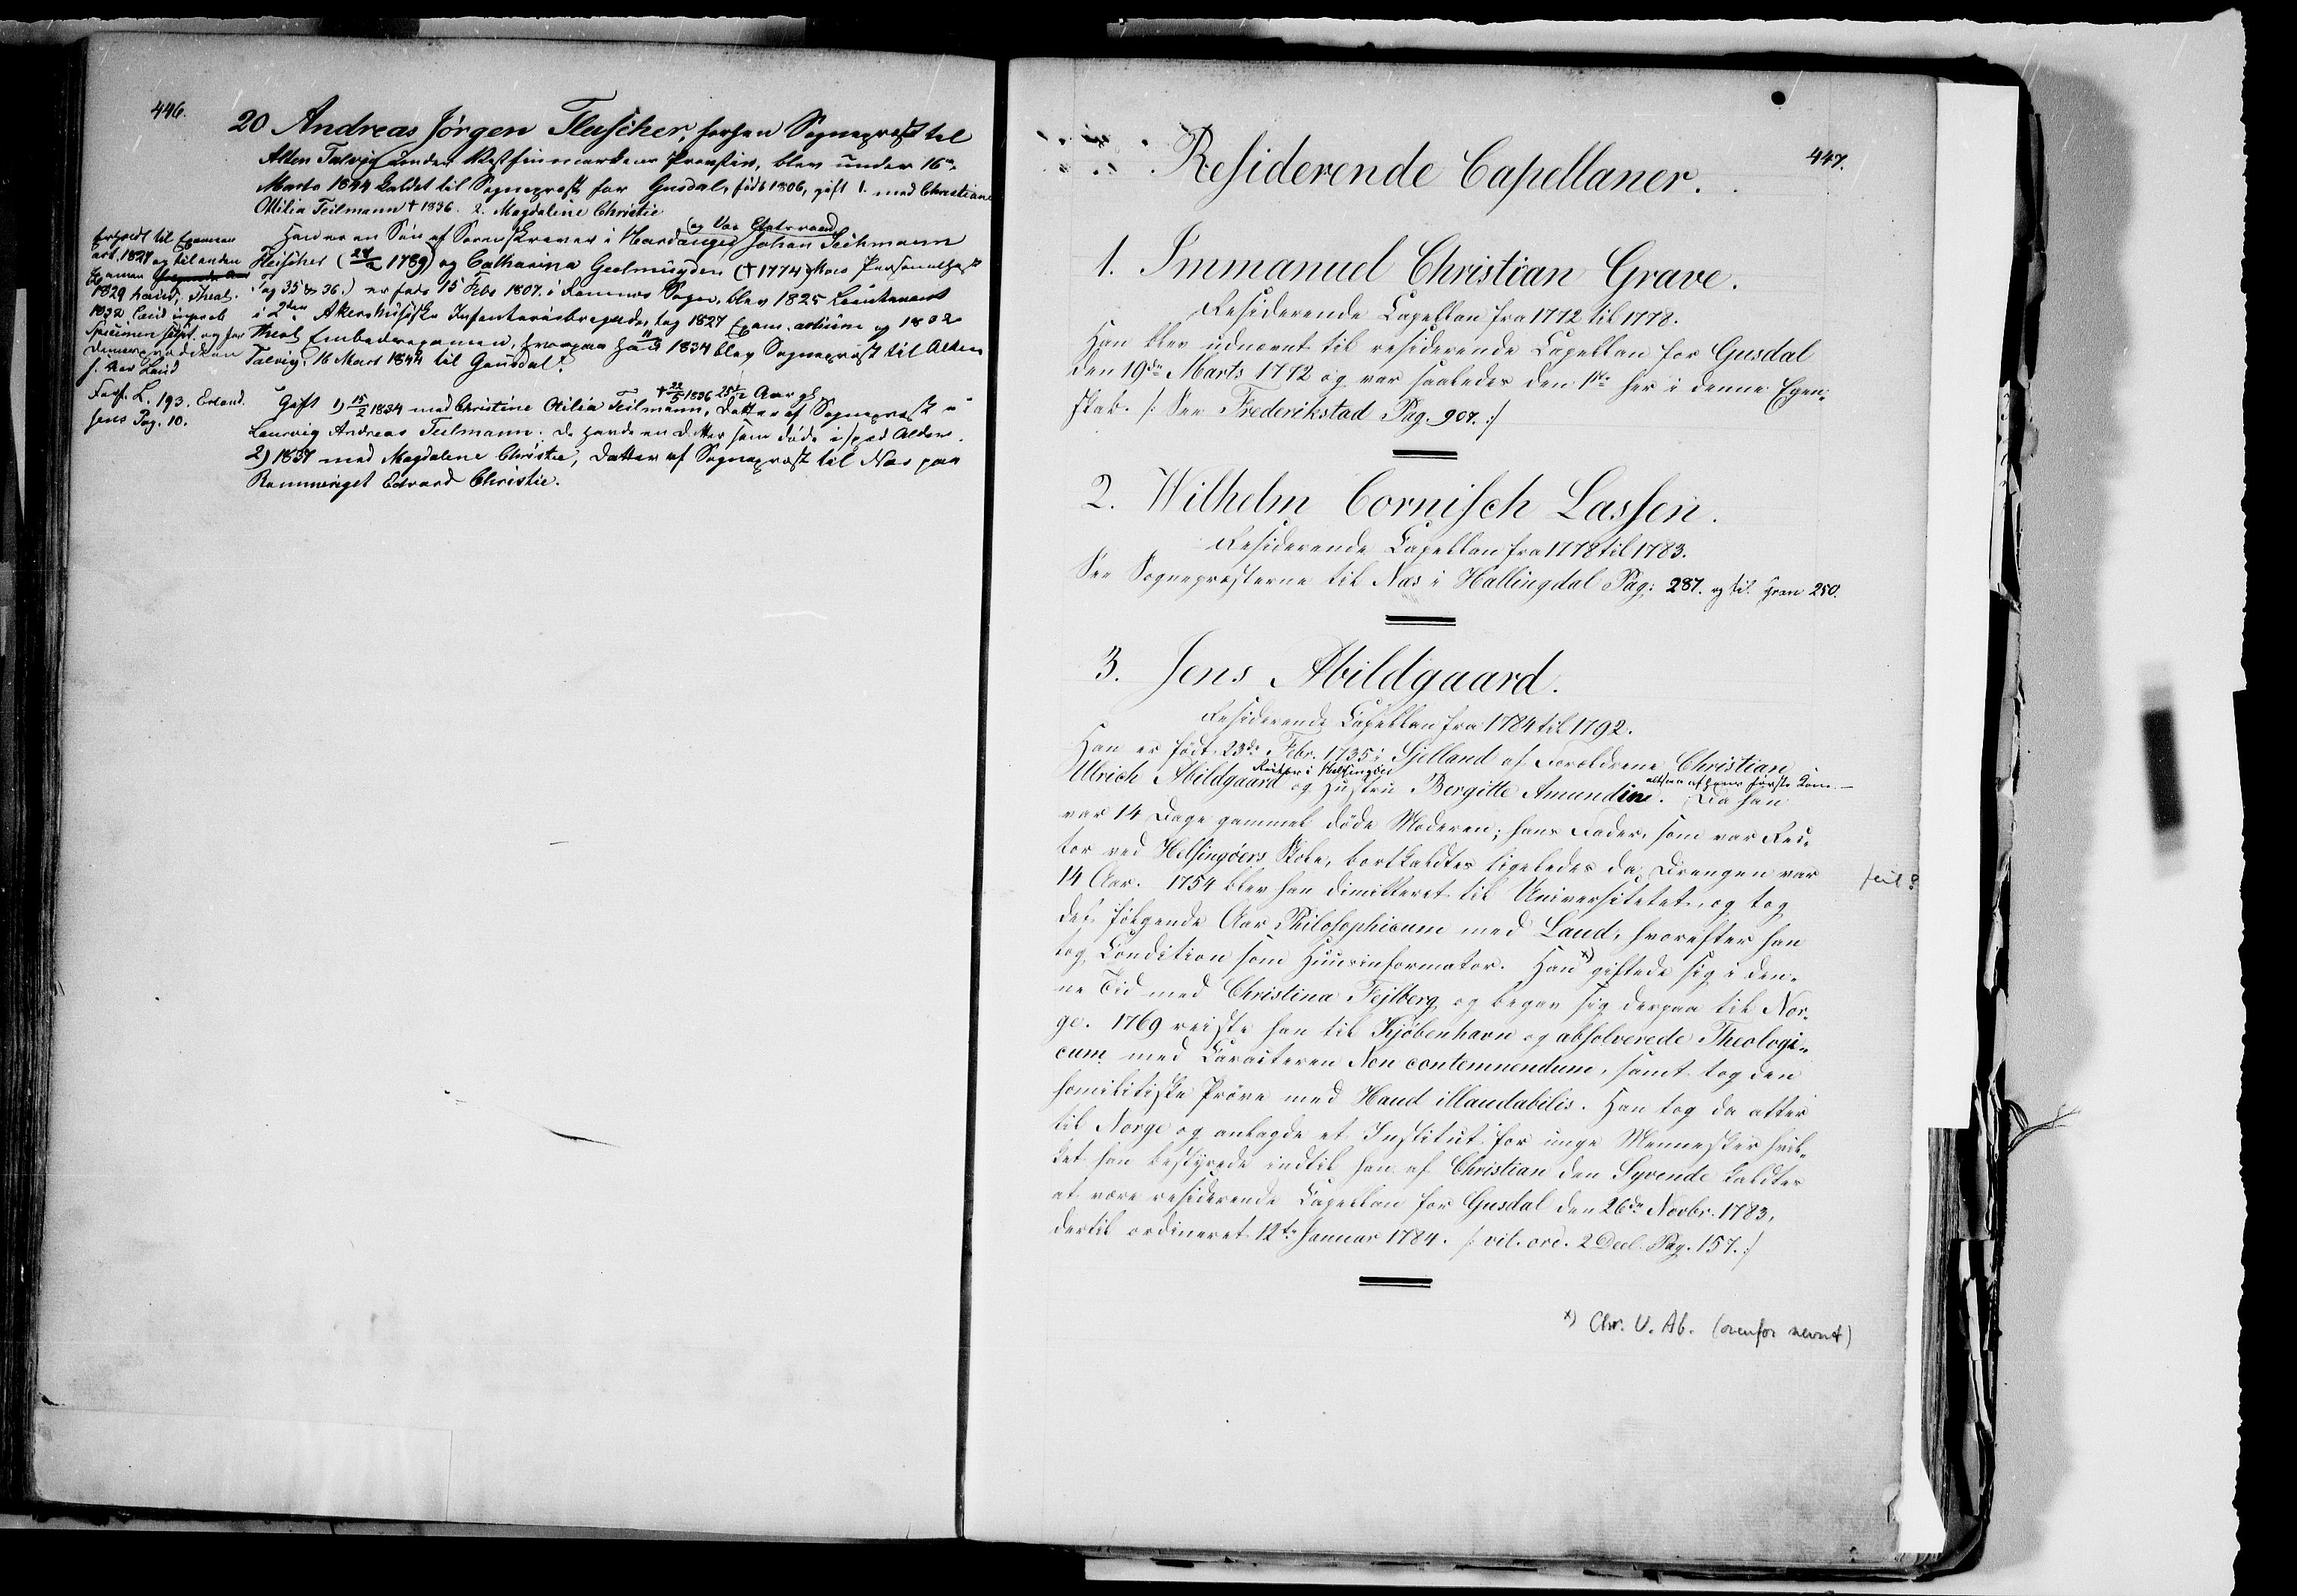 446.
20 Andreas Jörgen Fleischer, forhen Sogneprest til
Alten Talvig under Vestfinmarkens Provstie, blev under 16de
Marts 1844 kaldet til Sogneprest for Gusdal, født 1806, gift 1. med Christiane
Otilia Teilmann † 1836. 2. Magdaline Christie
Han er en Søn af Sorenskriver i Hardanger (og Vice Etatsraad) Johan Seckmann
Fleischer ( 1789) og Catharina Geelmuyden (†1774) Personalhist
Pag 35 & 36.) er født 15 Febr 1807. i Sogn, blev 1825 Lieutenant
i 2den Akershusiske Infanteribrigade, tog 1827 Exam. artium og 1832
Theol Embedsexamen, hvorpaa han 1834 blev Sogneprest til Alten
Talvig. 16 Mars 1844 til Gausdal.
Gift 1) 15/2 1834 med Christine Otilia Teilmann, † 22/5 1836 25 1/2 Aar gl. Datter af Sogneprest i
Laurvig Andreas Teilmann. De havde en Datter som døde i spæd Alder.
2) 1837 med Magdalene Christie, Datter af Sogneprest til Næs paa
Rommeriget Edvard Christie.
til Examen
art. 1827 og til anden
Examen
1829 haud, Theol.
1832 laud
Specimen og for
Dimisprædiken
Laud
Forf. L. 193. Erland-
sens Pag. 10.
447.
Residerende Capellaner.
1. Immanuel Christian Grave.
Residerende Capellan fra 1772 til 1778.
Han blev udnævnt til residerende Capellan for Gusdal
den 19de Marts 1772 og var saaledes den 1ste her i denne Egen-
skab. /: See Frederikstad Pag. 907. :/
2. Wilhelm Cornisch Lassen.
Residerende Capellan fra 1778 til 1783.
See Sognepresterne til Næs i Hallingdal Pag: 287. og til Gran 250.
3. Jens Abildgaard.
Residerende Capellan fra 1784 til 1792.
Han er født 23de Febr. 1735 i Sjelland af Forældrene Christian
Ulrich Abildgaard Rector i Helsingøer og Hustru Bergitte Amundine. altsaa af hans første Kone.— Da han
var 14 Dage gammel døde Moderen; hans Fader, som var Rec-
tor ved Helsingøers Skole, bortkaldtes ligeledes da Drengen var
14 Aar. 1754 blev han dimitteret til Universitetet, og tog
feil?
det følgende Aar Philosophicum med Laud, hvorefter han
tog Condition som Huusinformator. Han x) giftede sig i den-
ne Tid med Christina Fejlberg og begav sig derpaa til Nor-
ge. 1769 reiste han til Kjöbenhavn og absolverede Theologi-
cum med Caracteren Non contemnendum, samt tog den
homilitiske Prøve med Haud illaudabilis. Han tog da atter
til Norge og anlagde et Institut for unge Mennesker hvil-
ket han bestyrede indtil han af Christian den Syvende kaldtes
at være residerende Capellan for Gusdal den 26de Novbr. 1783,
dertil ordineret 12te Januar 1784. /: vit. ord. 2 Deel. Pag. 157. :/
x) Chr. U. Ab. (ovenfor nevnt)